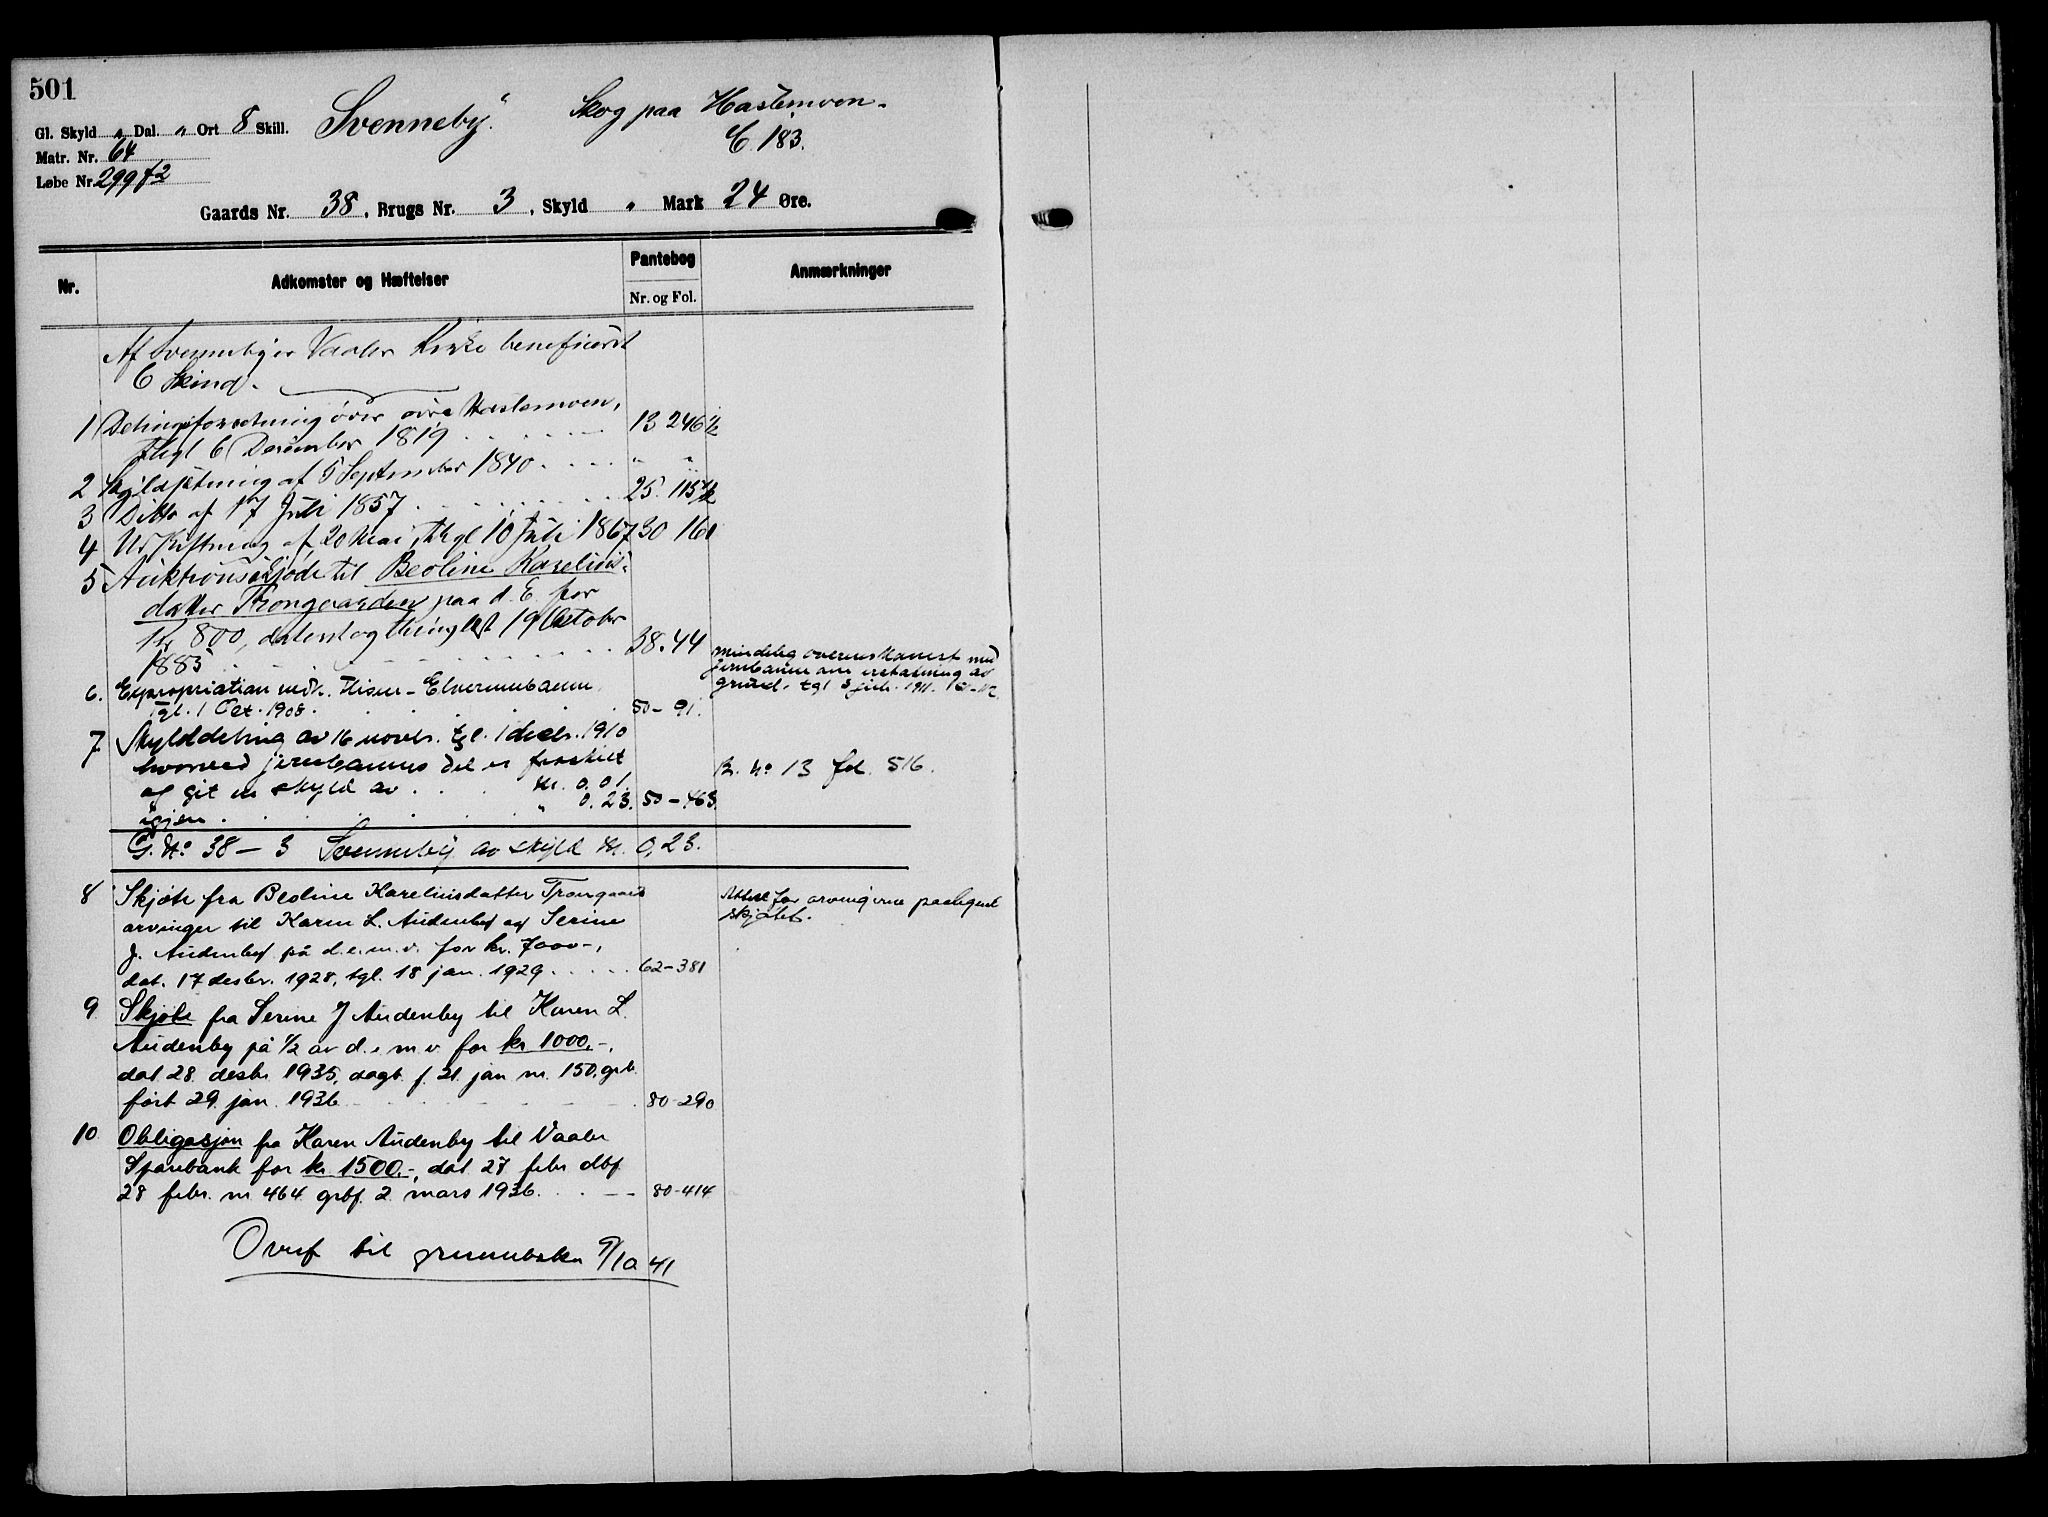 501
Gl. Skyld " Dal. " Ort 8 Skill. Svenneby. Skog paa Haslemoen.
C. 183.
Matr. Nr. 64
Løbe Nr. 299 f 2
Gaards Nr. 38, Brugs Nr. 3, Skyld " Mark 24 Øre.
Nr. Adkomster og Hæftelser Pantebog Anmærkninger
Nr. og Fol.
Af Svenneby er Vaaler Kirke beneficeret
6 Skind.
1 Delingsforretning over øvre Haslemoen,
thgl 6 December 1819 13 246 1/2
2 Skyldsætning af 5 September 1840 " "
3 Ditto af 17 Juli 1857 25. 115 1/2
4 Udskiftning af 20 Mai, thgl 10 Juli 1867 30 161
5 Auktionsskjøde til Beoline Karelius-
datter Trongaarden paa d. E. for
Kr 800, dateret og thinglæst 19 Oktober
1885 38. 44
mindelig overenskomst med
jernbanen om erstatning av
grund, tgl 3 juli 1911.
6. Expropriation vedk. Flisen-Elverumbanen
Tgl. 1 Oct. 1908. 50-91.
7 Skylddeling av 16 novbr. tgl. 1 decbr. 1910
hvorved jernbanens del er fraskilt
og git en skyld av . . . M. 0.01.
B. No 13 fol. 516.
igjen . . . " 0.23. 50-463.
G. No 38-3 Svenneby av skyld M. 0,23.
8 Skjøte fra Beoline Kareliusdatter Trongaard
arvinger til Karen L. Audenby og Serine
J. Audenby på d.e.m.v. for kr. 7000-,
dat. 17 desbr. 1928, tgl. 18 jan. 1929 . . . 62-381
Attest for arvingerne paategnet
skjøtet.
9 Skjøte fra Serine J Audenby til Karen L.
Audenby på 1/2 av d.e.m.v. for kr 1000.-,
dat 28. desbr 1935, dagb. f. 21. jan nr. 150, grb.
ført 29. jan. 1936 80-290
10 Obligasjon fra Karen Audenby til Vaaler
Sparebank for kr 1500.-, dat 27 febr dbf.
28 febr. nr 464 grbf. 2. mars 1936. 80-414
Overf til grunnboka 9/10 41